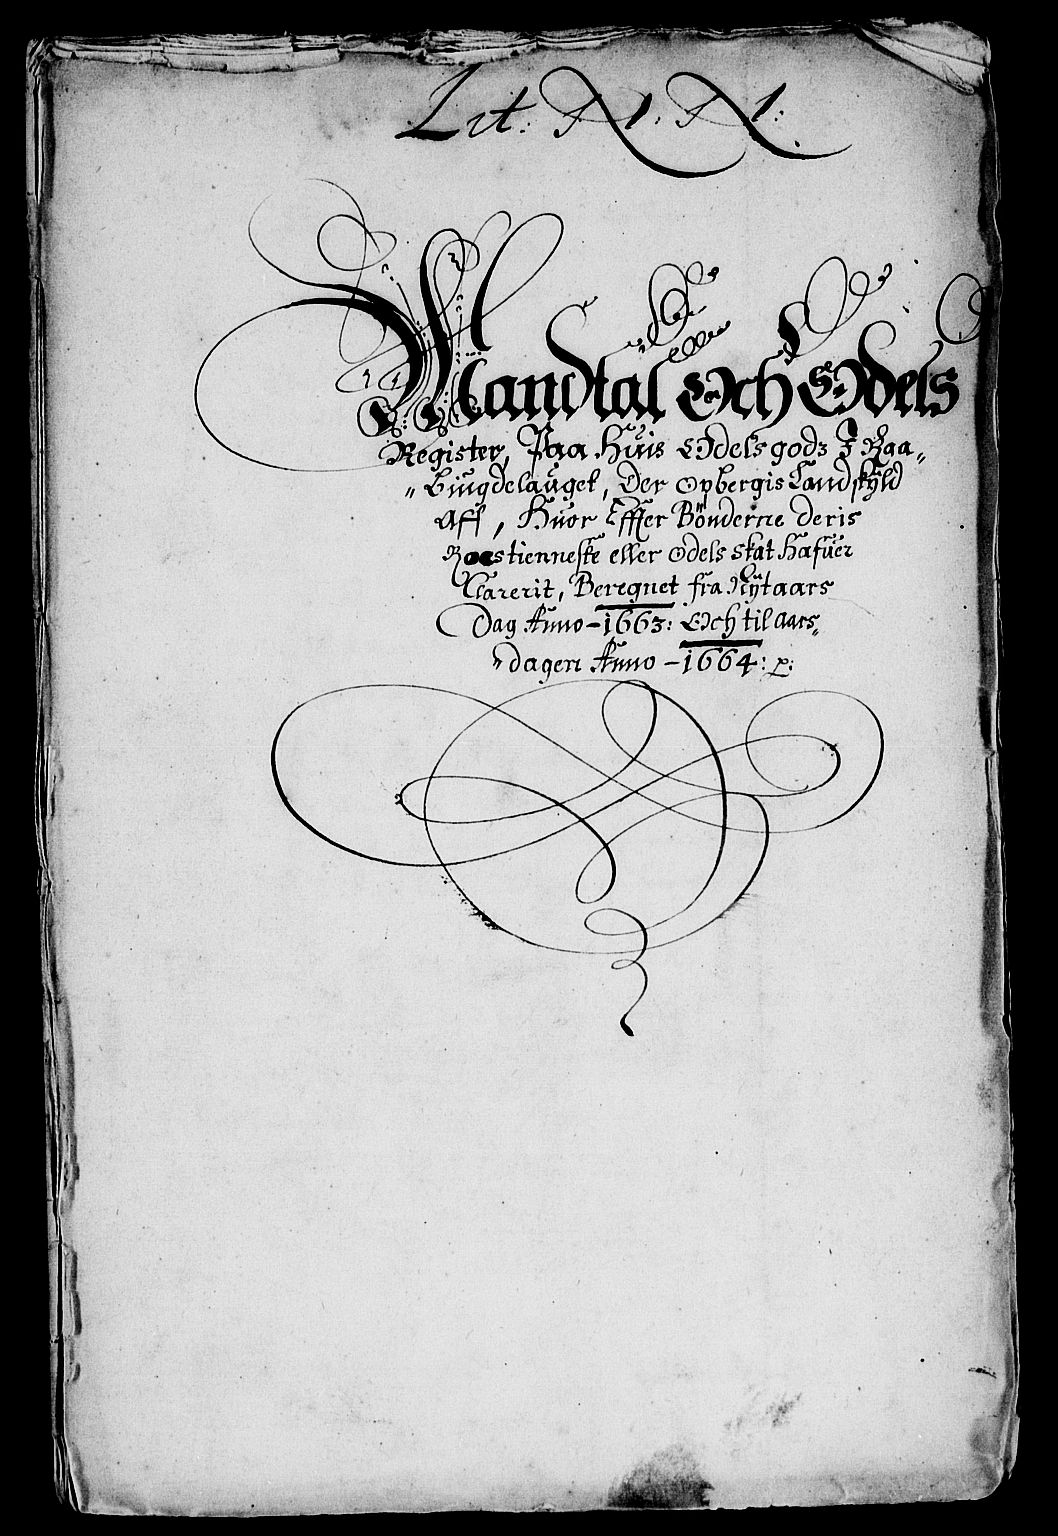 Lit: N. N:
Mandtal Och Odels
Register, Paa Huis Odels godz I Raa„
„Biugdelauget, Der opbergis Landskÿld
Aff, Huor Effter Bönderne deris
Roestienneste eller Odels skat Hafuer
Clarerit, Beregnet fra Nÿtaars
Dag Anno - 1663: Och til aars„
„dagen Anno - 1664: